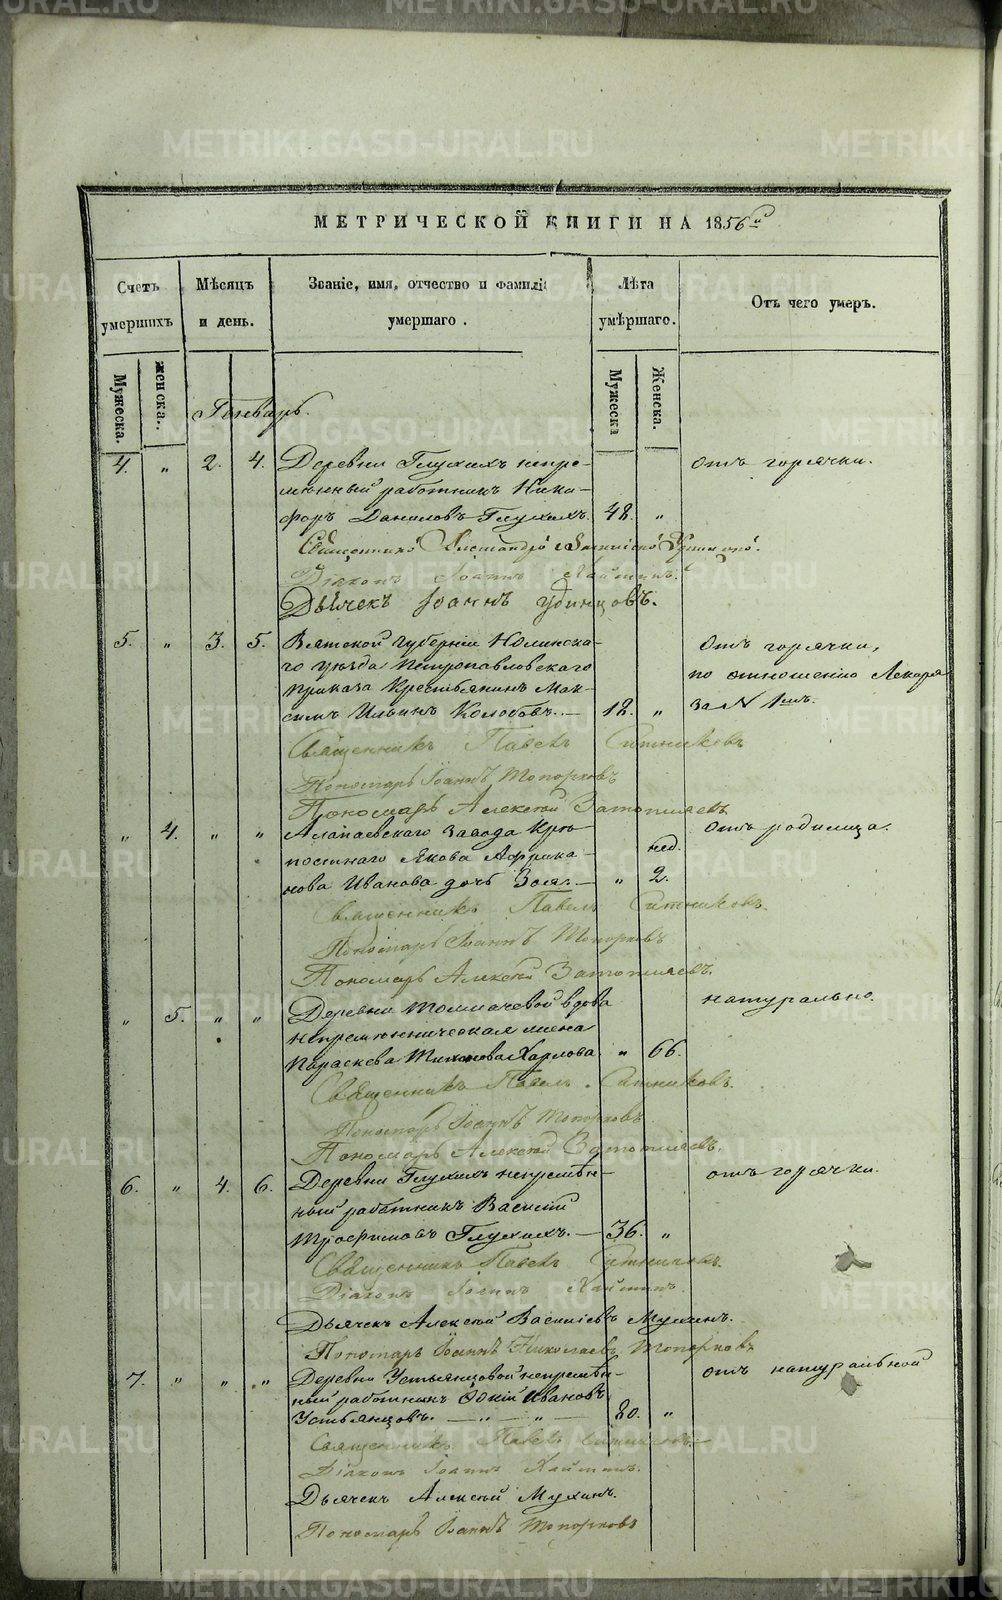 МЕТРИЧЕСКОЙ КНИГИ НА 1856й
Счетъ умершихъ
Мѣсяцъ и день.
Званіе, имя, отчество и фамилія умершаго.
Лѣта умѣршаго.
Отъ чего умеръ.
Мужеска.
женска.
Мужеска
Женска.
Генварь.
4. " 2. 4. Деревни Глухихъ непре- отъ горячки.
мѣнный работникъ Ники-
форъ Даниловъ Глухихъ. 48. "
Діаконъ Іоаннъ
Дьячекъ Іоаннъ Удинцовъ.
5. " 3. 5. Вятской Губерніи Нолинска- отъ горячки,
го уѣзда Петропавловскаго по отношенію Лекаря
приказа Крестьянинъ Мак- за № 1мъ.
симъ Ильинъ Колобовъ. — 18. "
Священникъ Павелъ Ситниковъ
Пономарь Іоаннъ Топорковъ
Пономарь Алексей Затопляевъ
" 4. " " Алапаевскаго Завода Крѣ- отъ родимца.
постнаго Якова Африка- нед.
нова Иванова дочь Зоя. — " 2.
Священникъ Павелъ Ситниковъ.
Пономарь Іоаннъ Топорковъ
Пономарь Алексей Затопляевъ.
" 5. " " Деревни Толмачевой вдова натурально.
непремѣнническая жена
Параскева Тихонова Харлова " 66.
Священникъ Павелъ Ситниковъ.
Пономарь Іоаннъ Топорковъ
Пономарь Алексей Затопляевъ.
6. " 4. 6. Деревни Глухихъ непремѣн- отъ горячки.
ный работникъ Василій
Трофимовъ Глухихъ. — 36. "
Священникъ Павелъ Ситниковъ.
Діаконъ Іоаннъ
Дьячекъ Алексей Василіевъ Мухинъ.
Пономарь Іоаннъ Николаевъ Топорковъ
7. " " " Деревни Устьянцовой непремѣн- отъ натуральной
ный работникъ Ивановъ
Устьянцовъ. — " — " — 80. "
Священникъ Павелъ Ситниковъ
Діаконъ Іоаннъ
Дьячекъ Алексей Мухинъ.
Пономарь Іоаннъ Топорковъ
METRIKI.GASO-URAL.RU